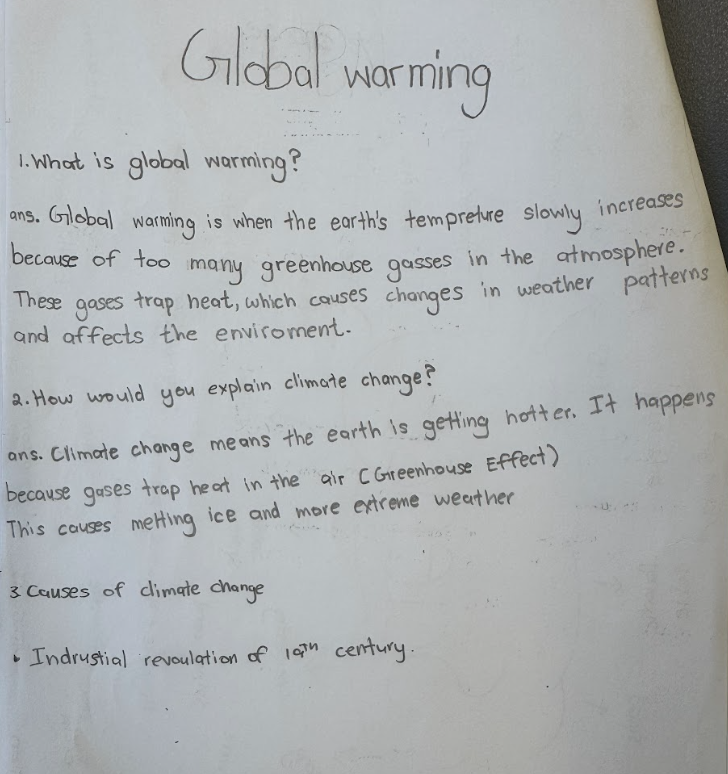 Global warming
1. What is global warming?
ans. Global warming is when the earth's tempreture slowly increases
because of too many greenhouse gasses in the atmosphere.
These gases trap heat, which causes changes in weather patterns
and affects the enviroment.
2. How would you explain climate change?
ans. Climate change means the earth is getting hotter. It happens
because gases trap heat in the air (Greenhouse Effect)
This causes melting ice and more extreme weather
3 Causes of climate change
• Indrustial revoulation of 19TH century.